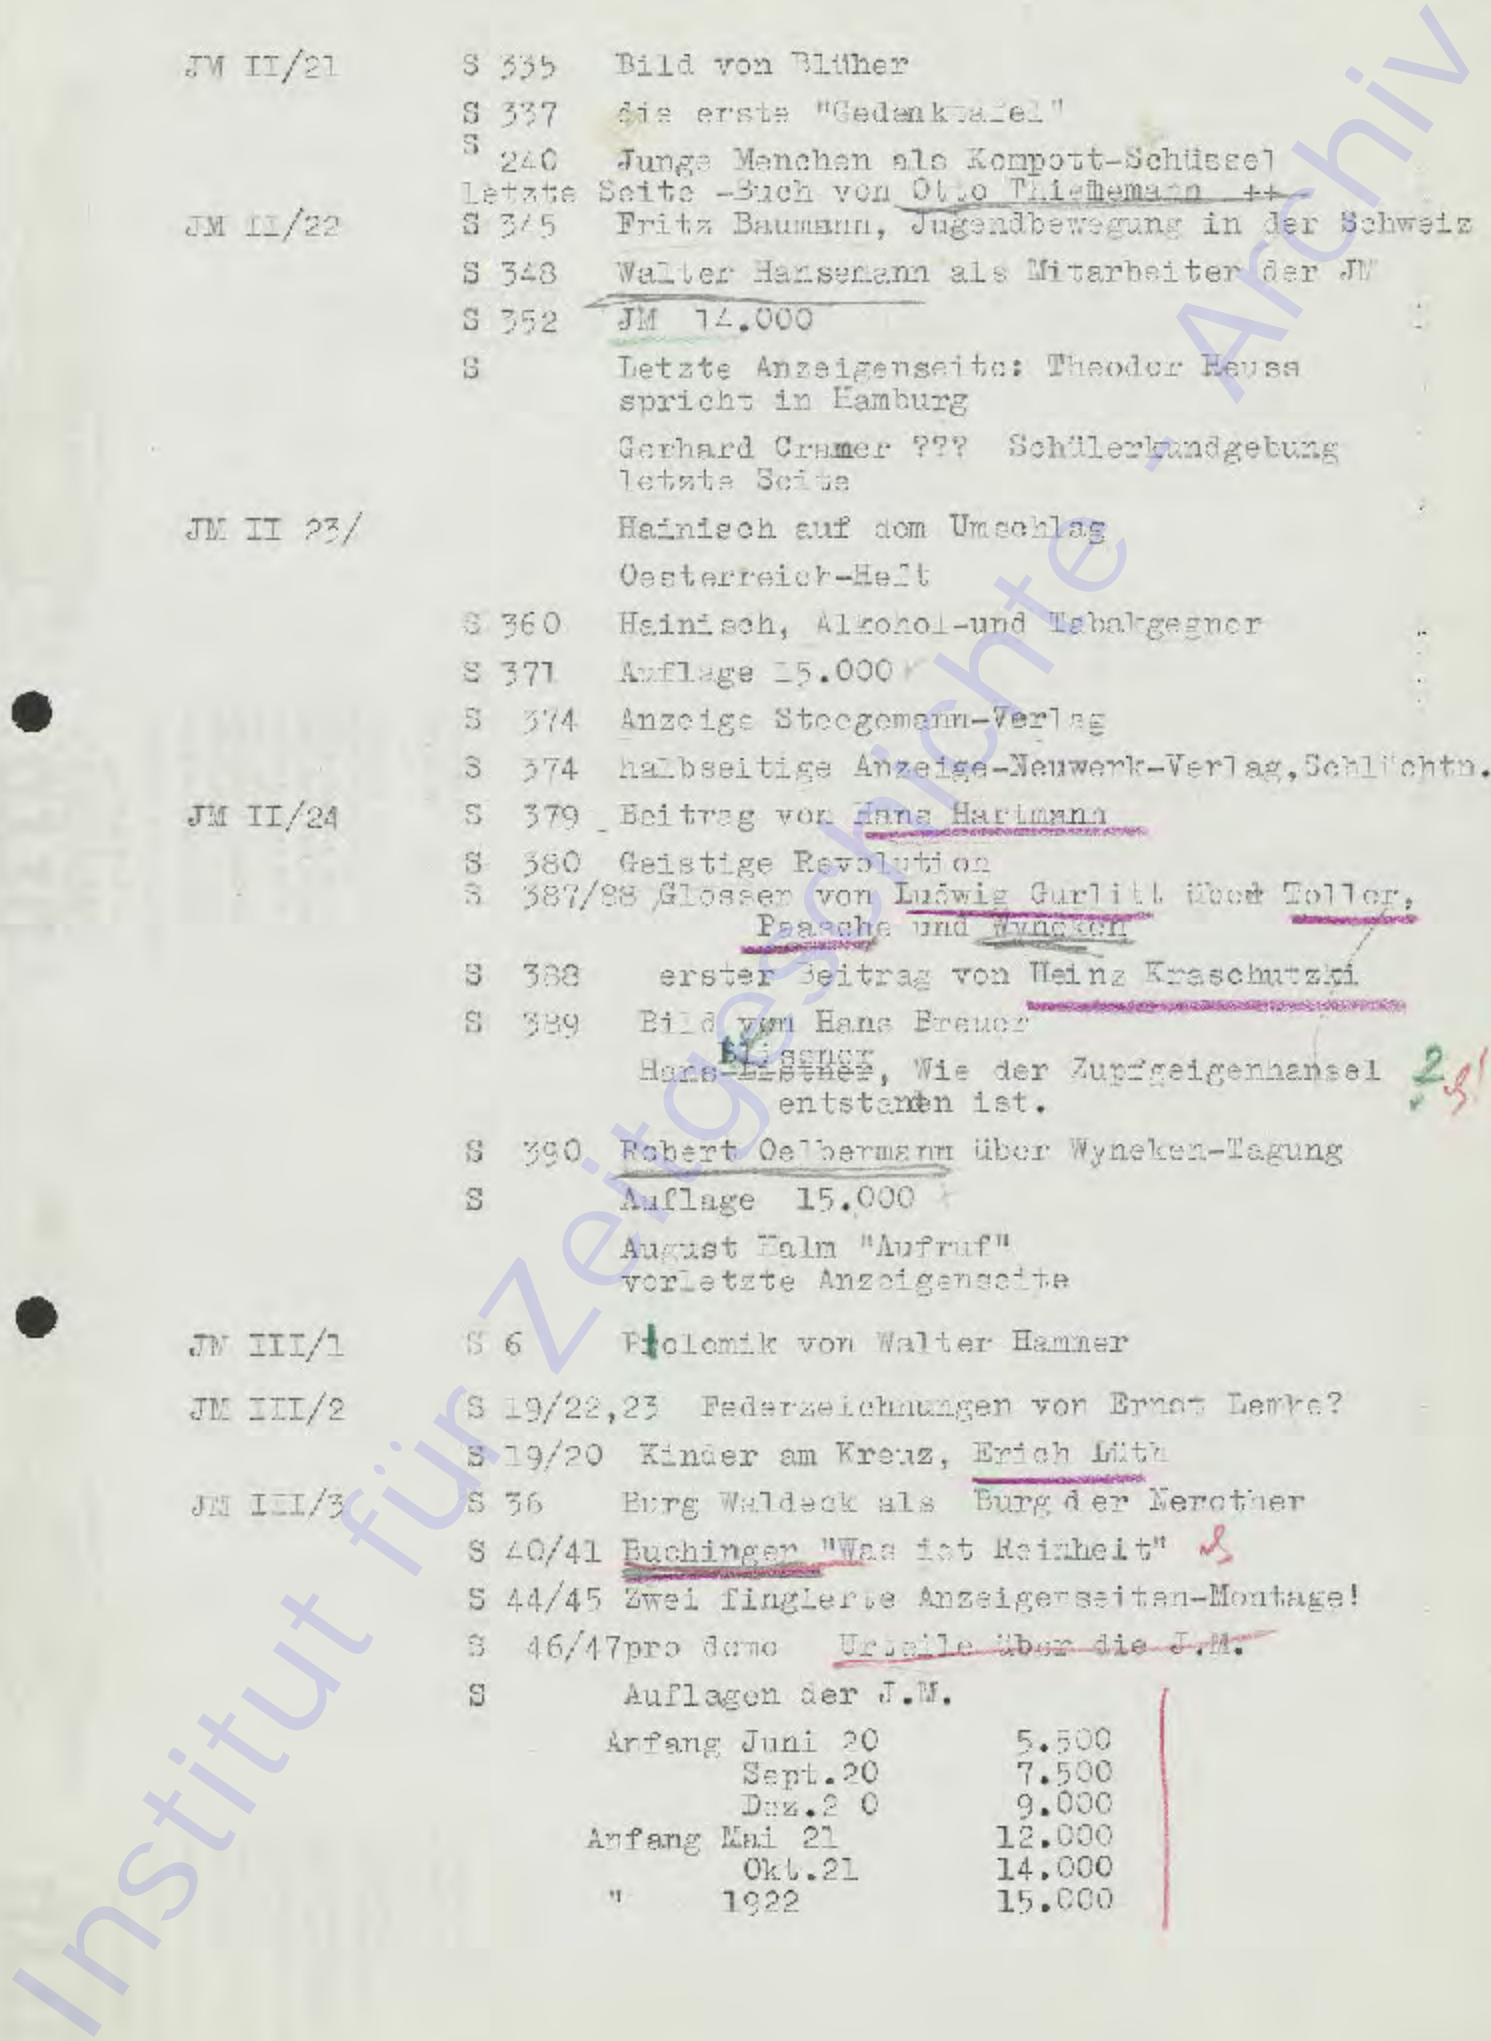 JM II/21 S 335 Bild von Blüher
S 337 die erste "Gedenktafel"
S 240 Junge Menchen als Kompott-Schüssel
letzte Seite -Buch von Otto Thiemann ++
JM II/22 S 345 Fritz Baumann, Jugendbewegung in der Schweiz
S 348 Walter Hansemann als Mitarbeiter der JM
S 352 JM 14.000
S Letzte Anzeigenseite: Theodor Heuss
spricht in Hamburg
Gerhard Cramer ??? Schülerkundgebung
letzte Seite
JM II 23/ Hainisch auf dem Umschlag
Oesterreich-Heft
S 360 Hainisch, Alkohol-und Tabakgegner
S 371 Auflage 15.000
S 374 Anzeige Steegemann-Verlag
S 374 halbseitige Anzeige-Neuwerk-Verlag,Schlüchtn.
JM II/24 S 379 Beitrag von Hans Hartmann
S 380 Geistige Revolution
S 387/88 Glossen von Ludwig Gurlitt über Toller,
Paasche und Wyneken
S 388 erster Beitrag von Heinz Kraschutzki
S 389 Bild von Hans Breuer
Lissner
Hans Listner, Wie der Zupfgeigenhansel 2
entstanden ist.
S 390 Robert Oelbermann über Wyneken-Tagung
S Auflage 15.000
August Halm "Aufruf"
vorletzte Anzeigenseite
JM III/1 S 6 Polemik von Walter Hammer
JM III/2 S 19/22,23 Federzeichnungen von Ernst Lemke?
S 19/20 Kinder am Kreuz, Erich Lüth
JM III/3 S 36 Burg Waldeck als Burg der Nerother
S 40/41 Buchinger "Was ist Reinheit"
S 44/45 Zwei fingierte Anzeigenseiten-Montage!
S 46/47pro domo Urteile über die J.M.
S Auflagen der J.M.
Anfang Juni 20 5.500
Sept.20 7.500
Dez.2 0 9.000
Anfang Mai 21 12.000
Okt.21 14.000
" 1922 15.000
Institut für Zeitgeschichte - Archiv